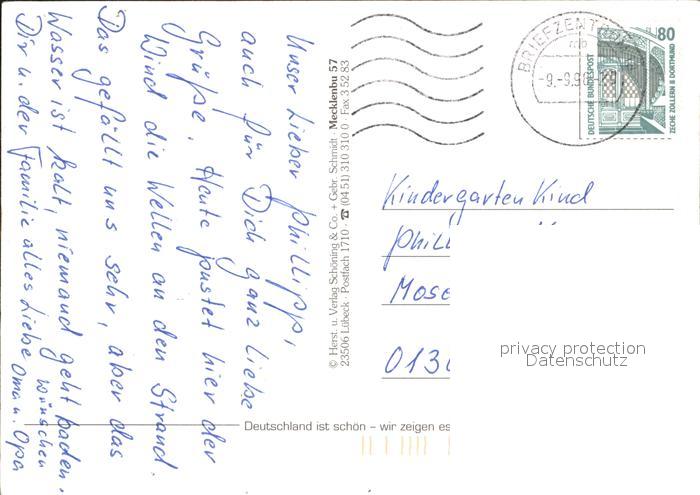 Unser lieber Phillipp,
auch für Dich ganz liebe
Grüße. Heute pustet hier der
Wind die Wellen an den Strand.
Das gefällt uns sehr, aber das
Wasser ist kalt, niemand geht baden.
wünschen
Dir u. der Familie alles Liebe Oma u. Opa
© Herst. u. Verlag Schöning & Co. + Gebr. Schmidt · Mecklenbu 57
23506 Lübeck · Postfach 1710 · ☎ (04 51) 310 310 0 · Fax 3 52 83
BRIEFZENTR
mb
-9.-9.9
80
DEUTSCHE BUNDESPOST
ZECHE ZOLLERN II DORTMUND
Kindergarten Kind
Phill
Mose
013
privacy protection
Datenschutz
Deutschland ist schön – wir zeigen es